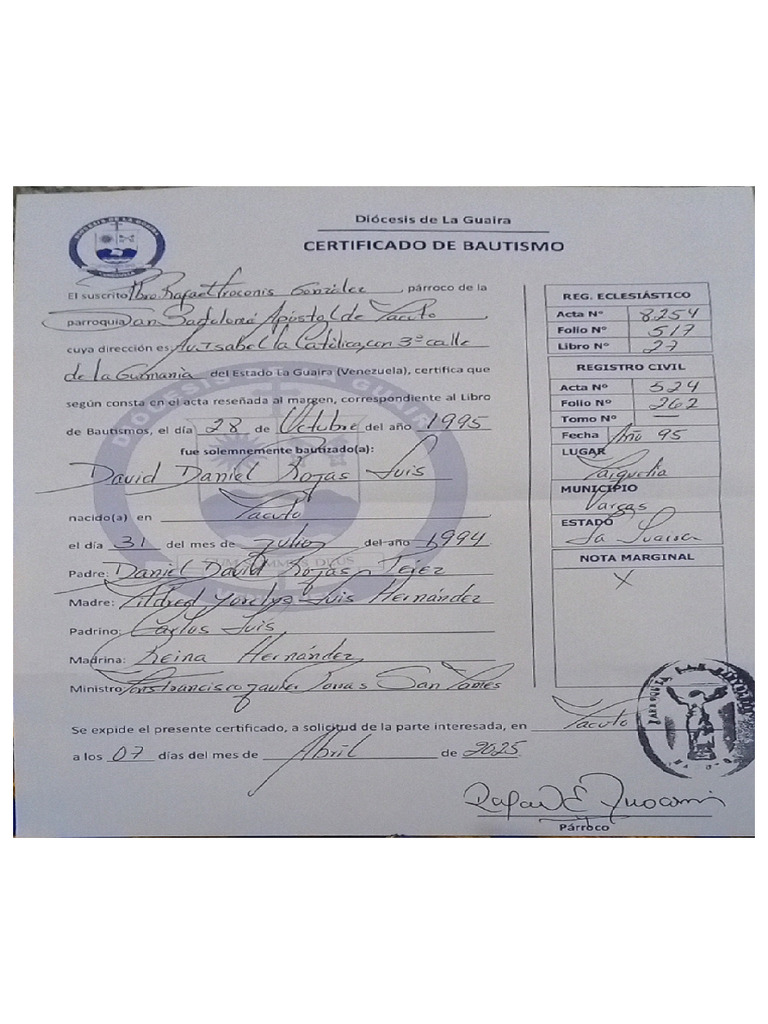 DIOCESIS DE LA GUAIRA
VENEZUELA
Diócesis de La Guaira
CERTIFICADO DE BAUTISMO
El suscrito Pbro. Rafael Troconis González, párroco de la
parroquia San Bartolomé Apóstol de Macuto
cuya dirección es: Av. Isabel la Católica, con 3ª calle
de la Guzmania del Estado La Guaira (Venezuela), certifica que
según consta en el acta reseñada al margen, correspondiente al Libro
de Bautismos, el día 28 de Octubre del año 1995
fue solemnemente bautizado(a):
David Daniel Rojas Luis
nacido(a) en Macuto
el día 31 del mes de Julio del año 1994
Padre: Daniel David Rojas Pérez
Madre: Yorelys Luis Hernández
Padrino: Carlos Luís
Madrina: Reina Hernández
Ministro: Francisco Javier San
Se expide el presente certificado, a solicitud de la parte interesada, en Macuto
a los 07 días del mes de Abril de 2025
Párroco
REG. ECLESIÁSTICO
Acta Nº 8.254
Folio Nº 517
Libro Nº 27
REGISTRO CIVIL
Acta Nº 524
Folio Nº 262
Tomo Nº —
Fecha Año 95
LUGAR
Maiquetía
MUNICIPIO
Vargas
ESTADO
La Guaira
NOTA MARGINAL
X